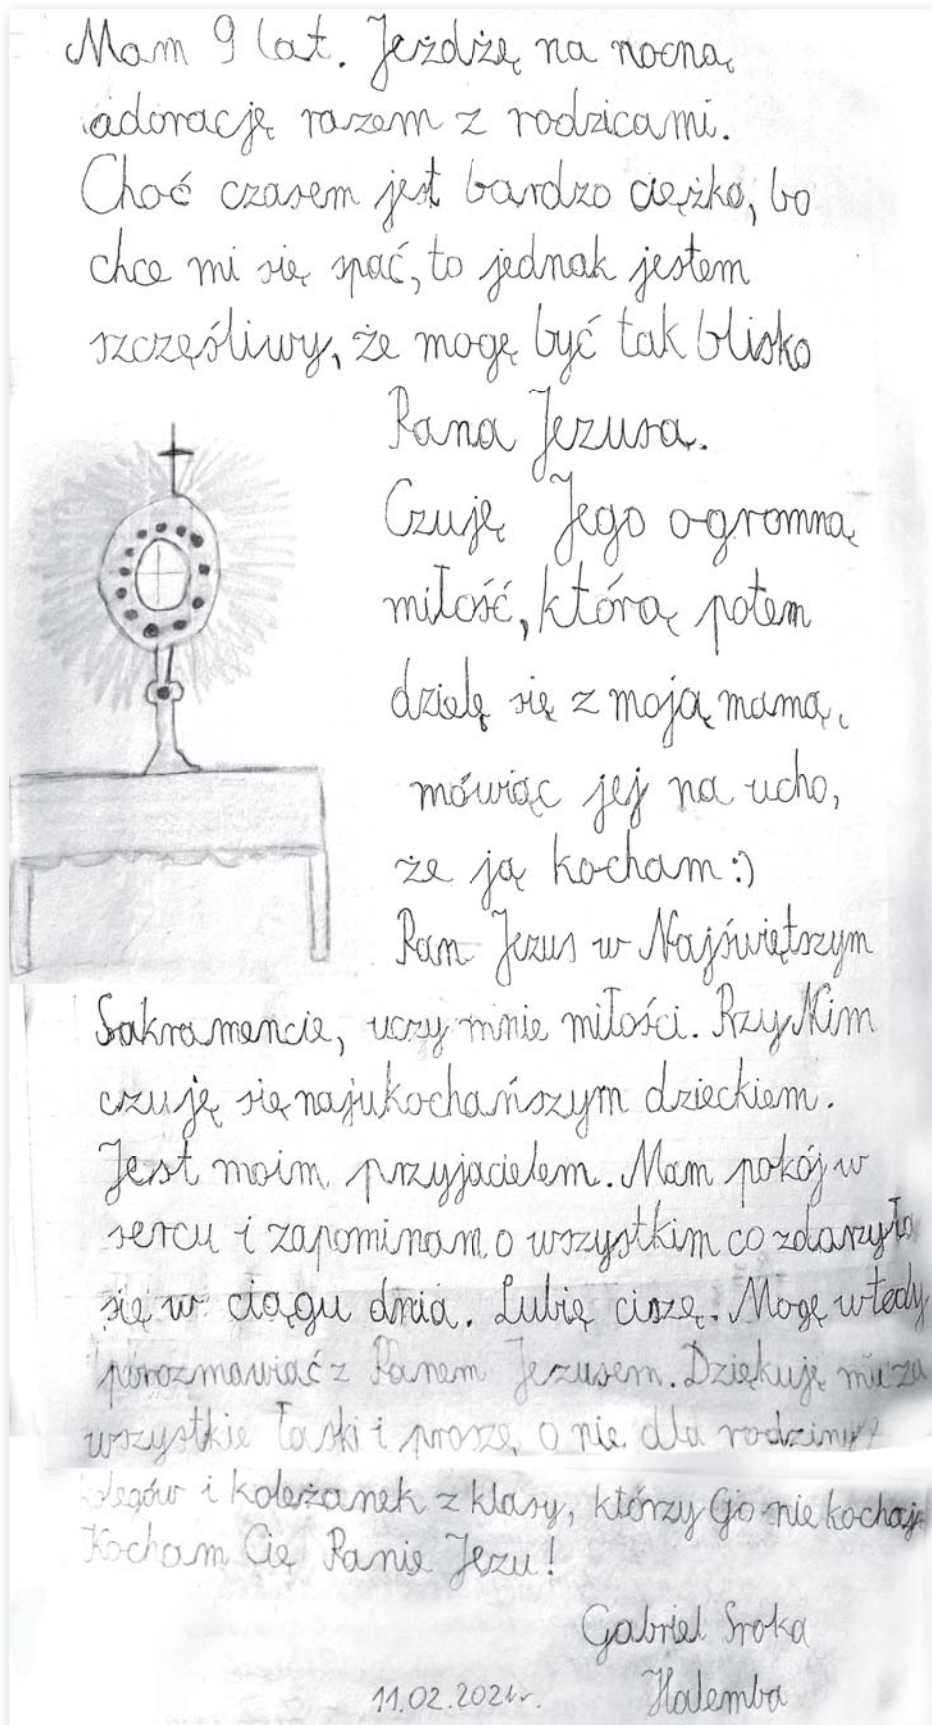 Mam 9 lat. Jeżdżę na nocną
adorację razem z rodzicami.
Choć czasem jest bardzo ciężko, bo
chce mi się spać, to jednak jestem
szczęśliwy, że mogę być tak blisko
Pana Jezusa.
Czuję Jego ogromną
miłość, którą potem
dzielę się z moją mamą,
mówiąc jej na ucho,
że ją kocham :)
Pan Jezus w Najświętszym
Sakramencie, uczy mnie miłości. Przy Nim
czuję się najukochańszym dzieckiem.
Jest moim przyjacielem. Mam pokój w
sercu i zapominam o wszystkim co zdarzyło
się w ciągu dnia. Lubię ciszę. Mogę wtedy
porozmawiać z Panem Jezusem. Dziękuję mu za
wszystkie łaski i proszę o nie dla rodziny
kolegów i koleżanek z klasy, którzy Go nie kochają
Kocham Cię Panie Jezu!
Gabriel Sroka
11.02.2021r. Halemba